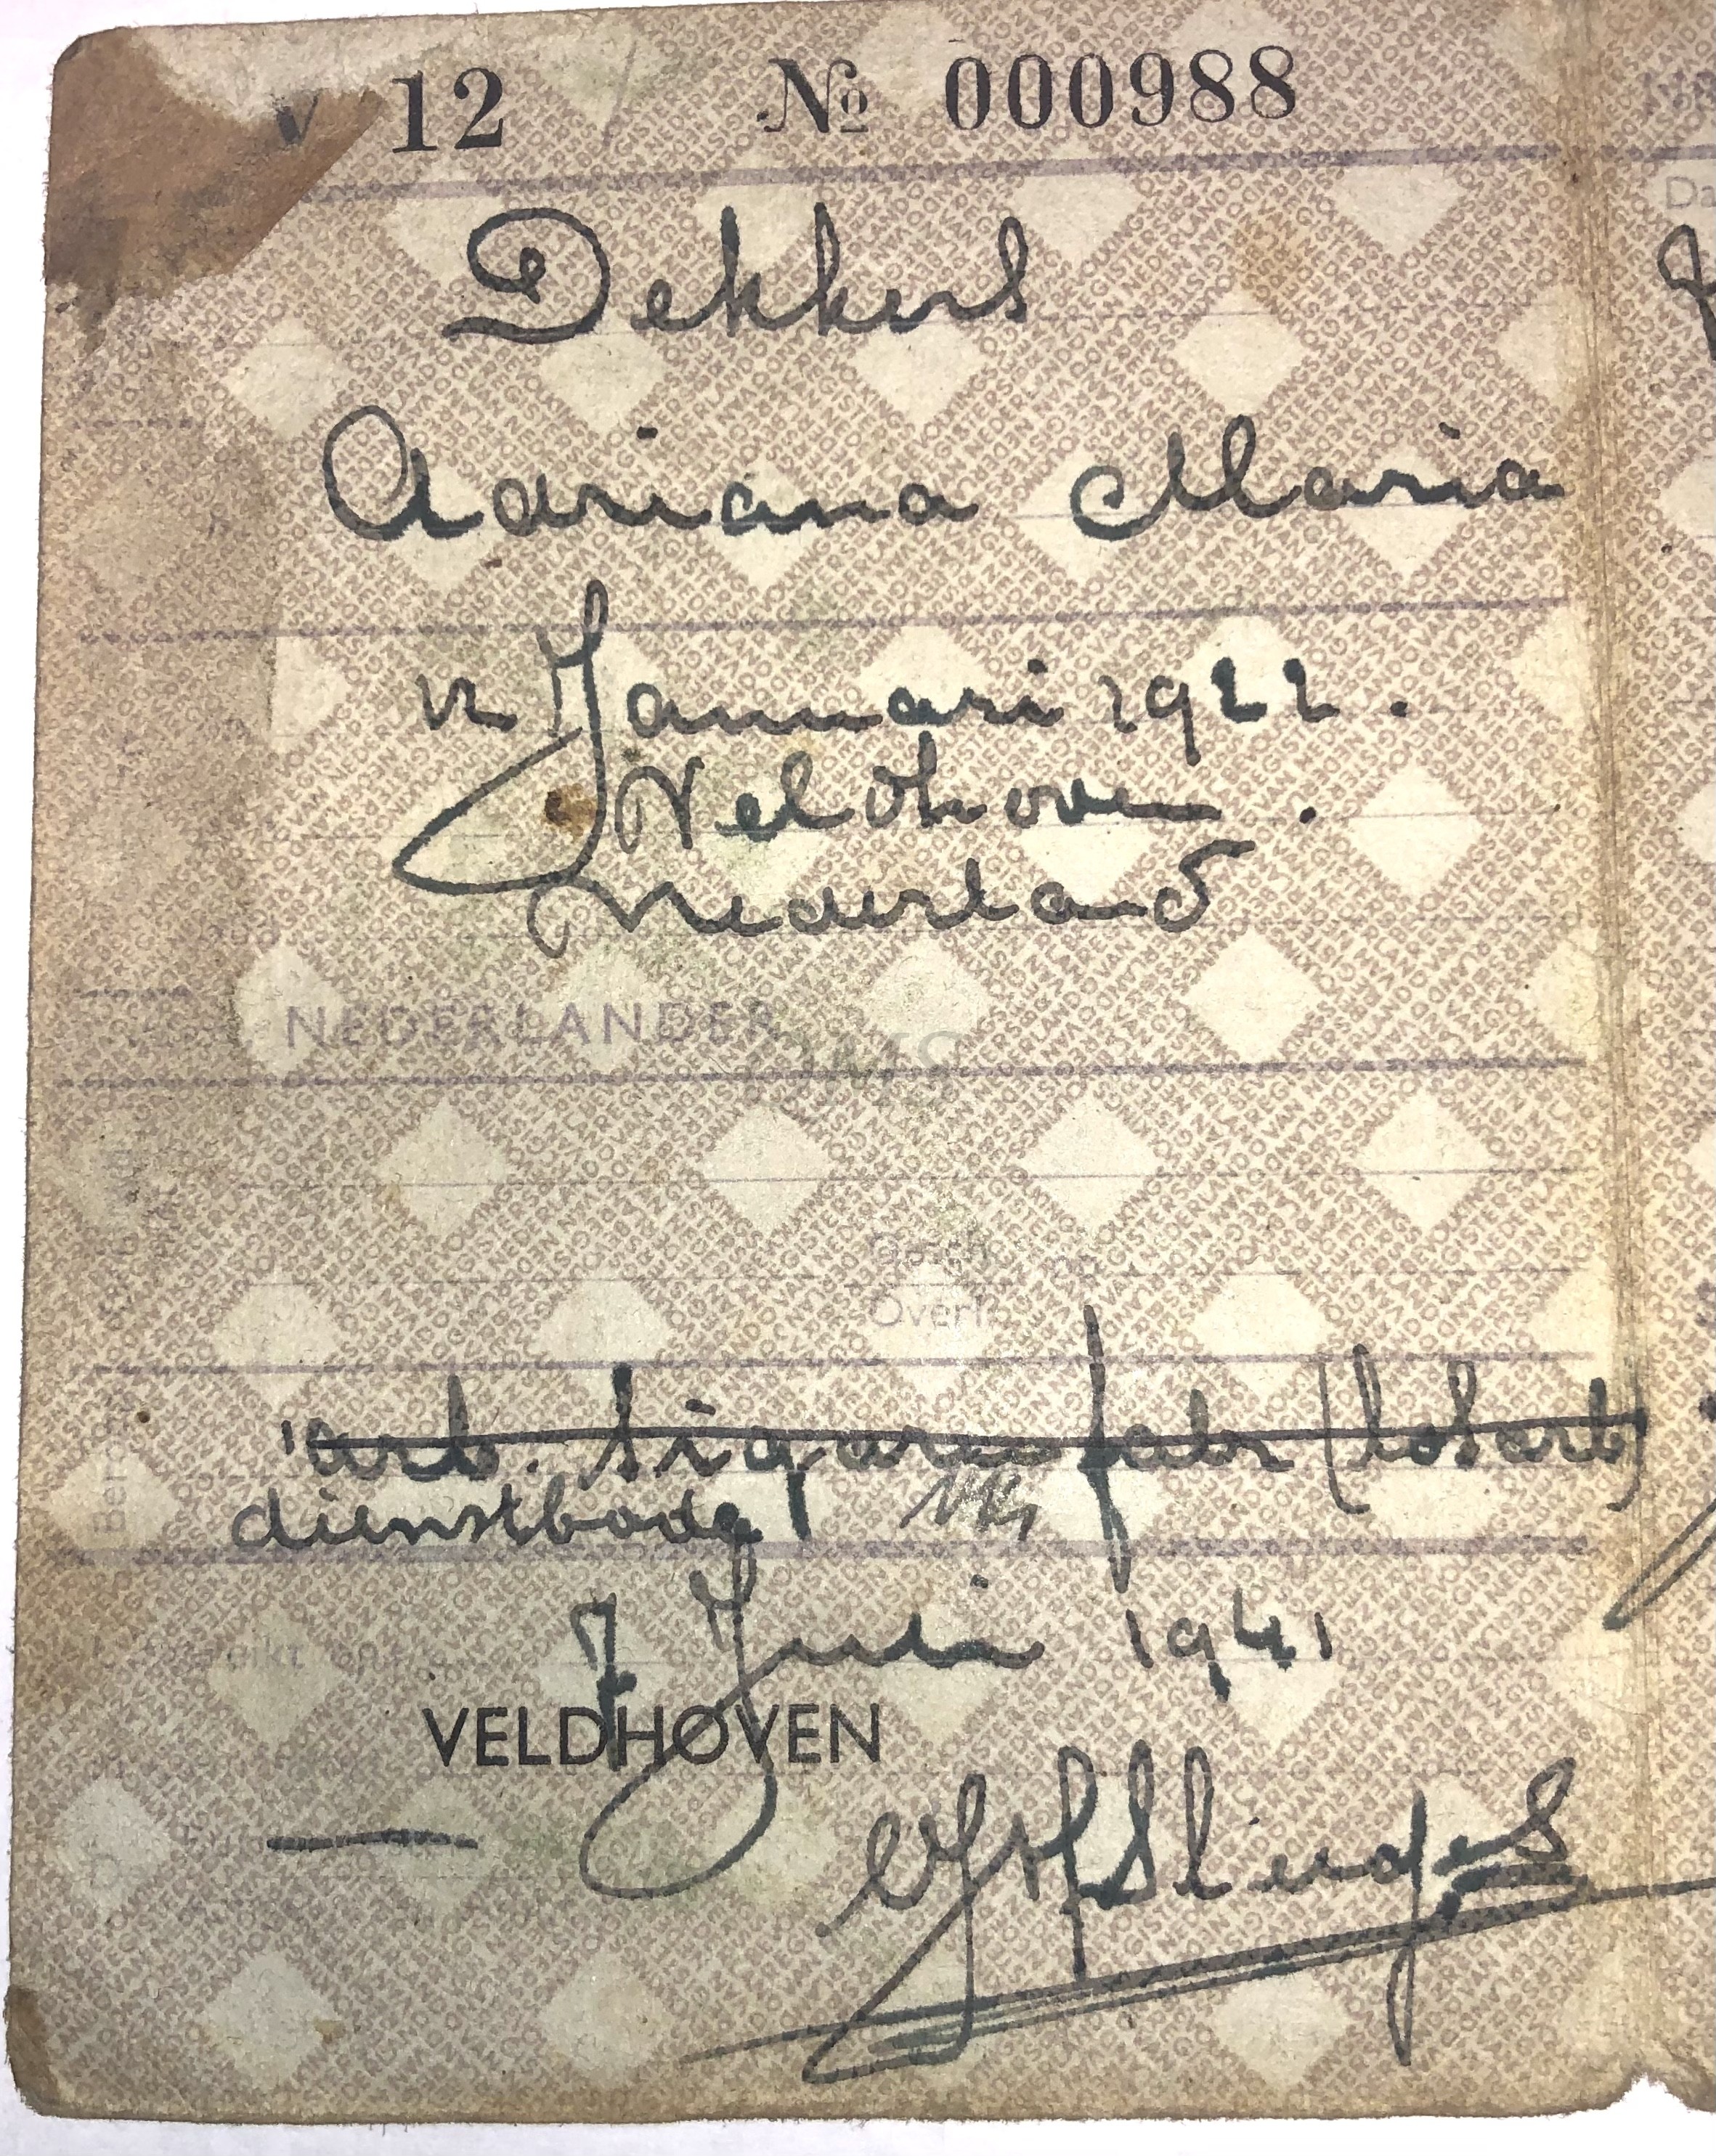 V 12 № 000988
Dekkers
Adriana Maria
12 Januari 1922.
Veldhoven.
Nederland
NEDERLANDER
Overl
arb. sigarenfabr (losarb)
dienstbode
7 Juli 1941
VELDHOVEN